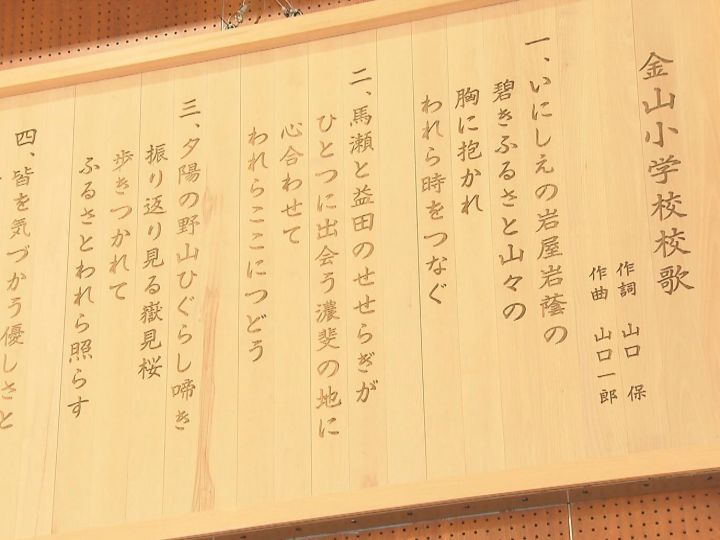 金山小学校校歌
作詞 山口 保
作曲 山口一郎
一、いにしえの岩屋岩蔭の
碧きふるさと山々の
胸に抱かれ
われら時をつなぐ
二、馬瀬と益田のせせらぎが
ひとつに出会う濃斐の地に
心合わせて
われらここにつどう
三、夕陽の野山ひぐらし啼き
振り返り見る嶽見桜
歩きつかれて
ふるさとわれら照らす
四、皆を気づかう優しさと